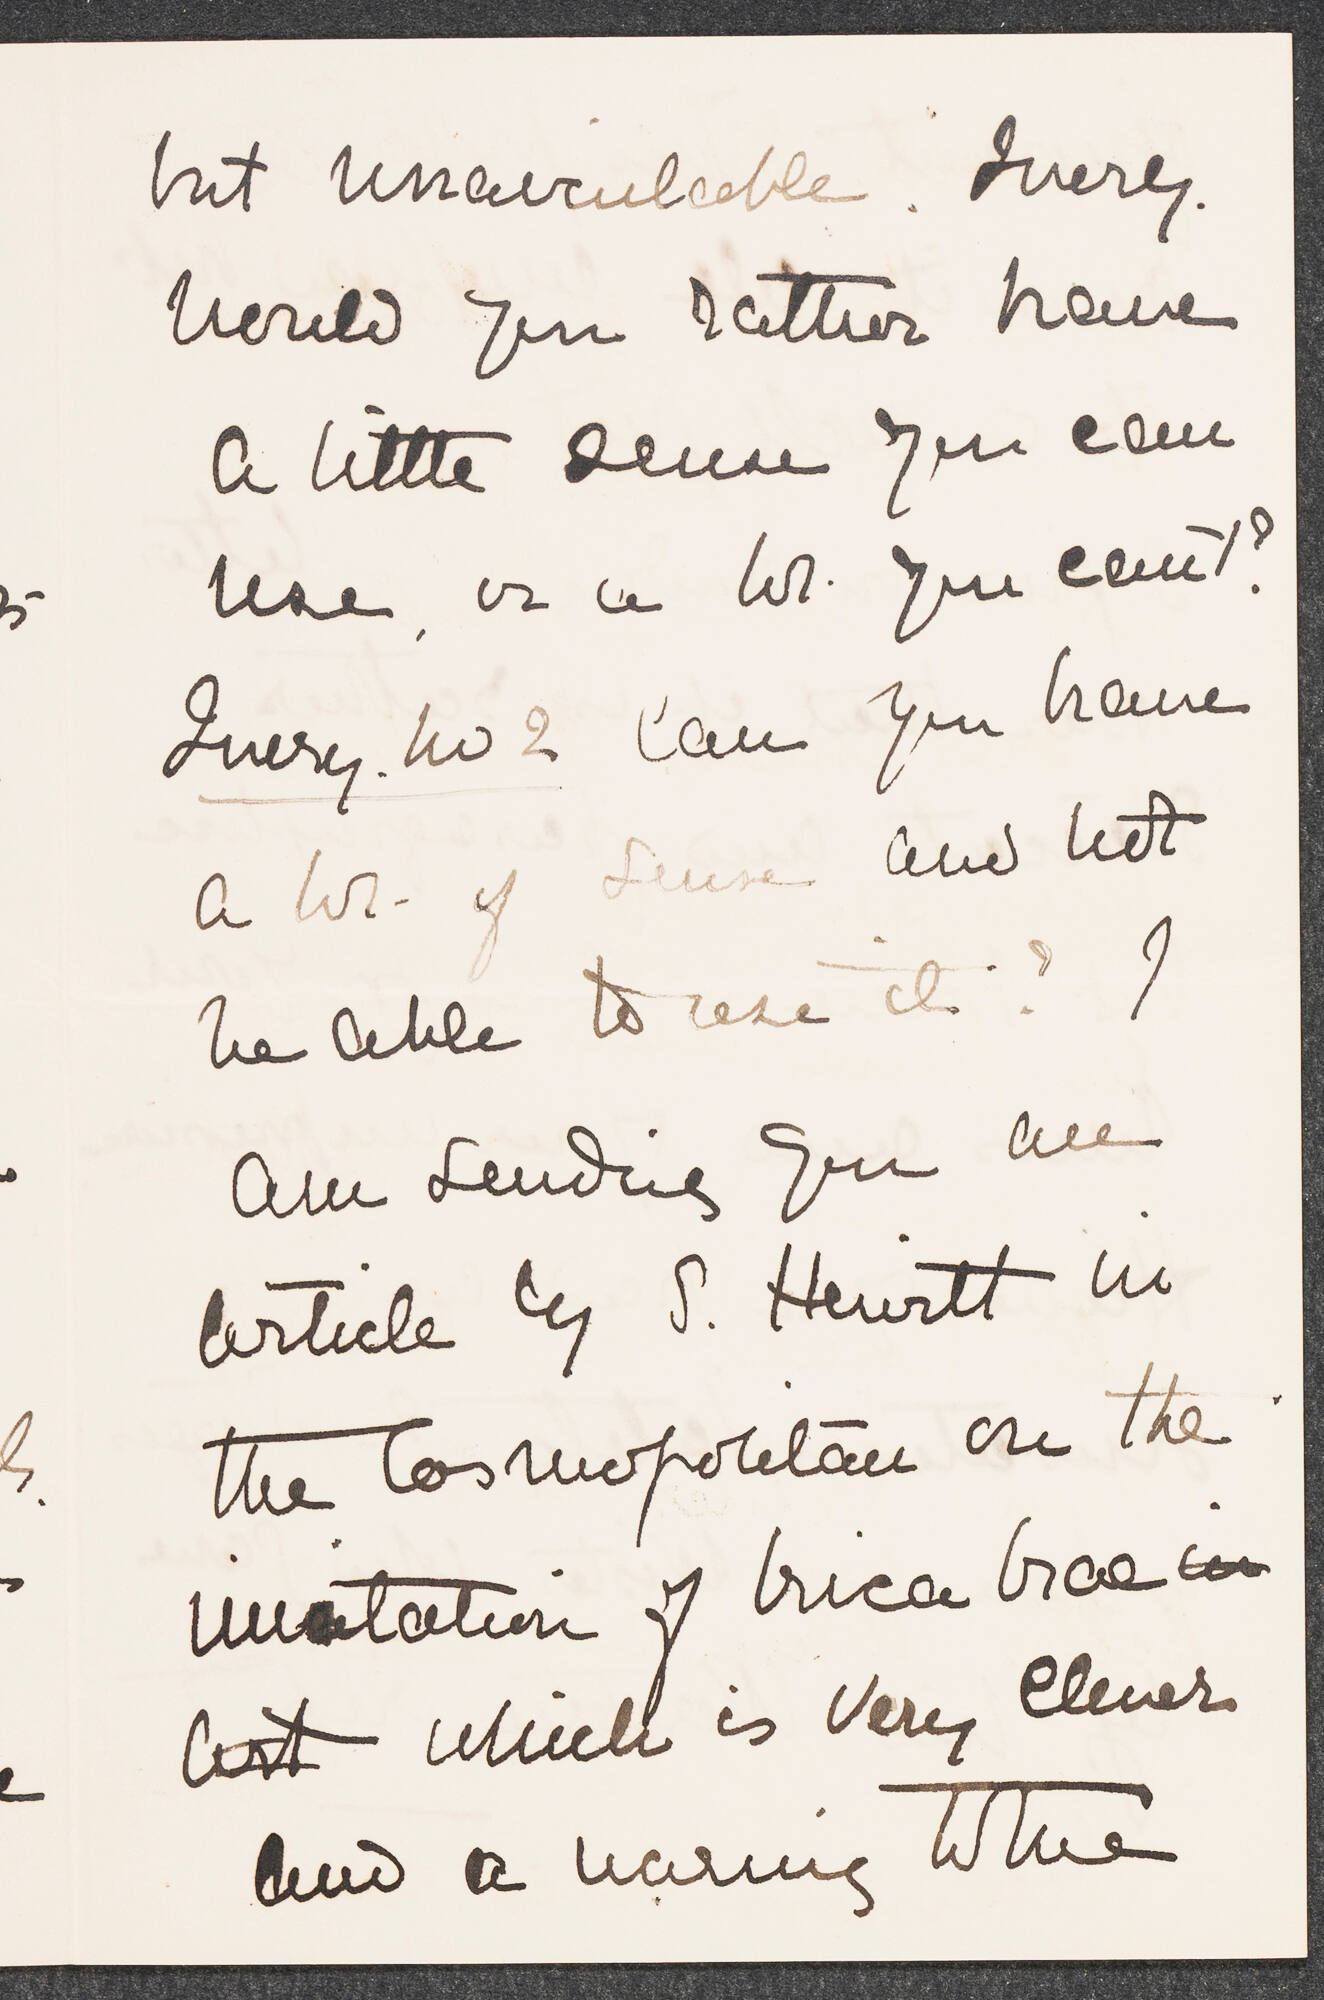 but unavailable. Query.
Would you rather have
a little sense you can
use, or a lot. you can't?
Query. No 2 Can you have
a lot. of sense and not
be able to use it? I
am sending you an
article by S. Hewitt in
the Cosmopolitan on the
imitation of brica brac in
art which is very clever
and a warning to the